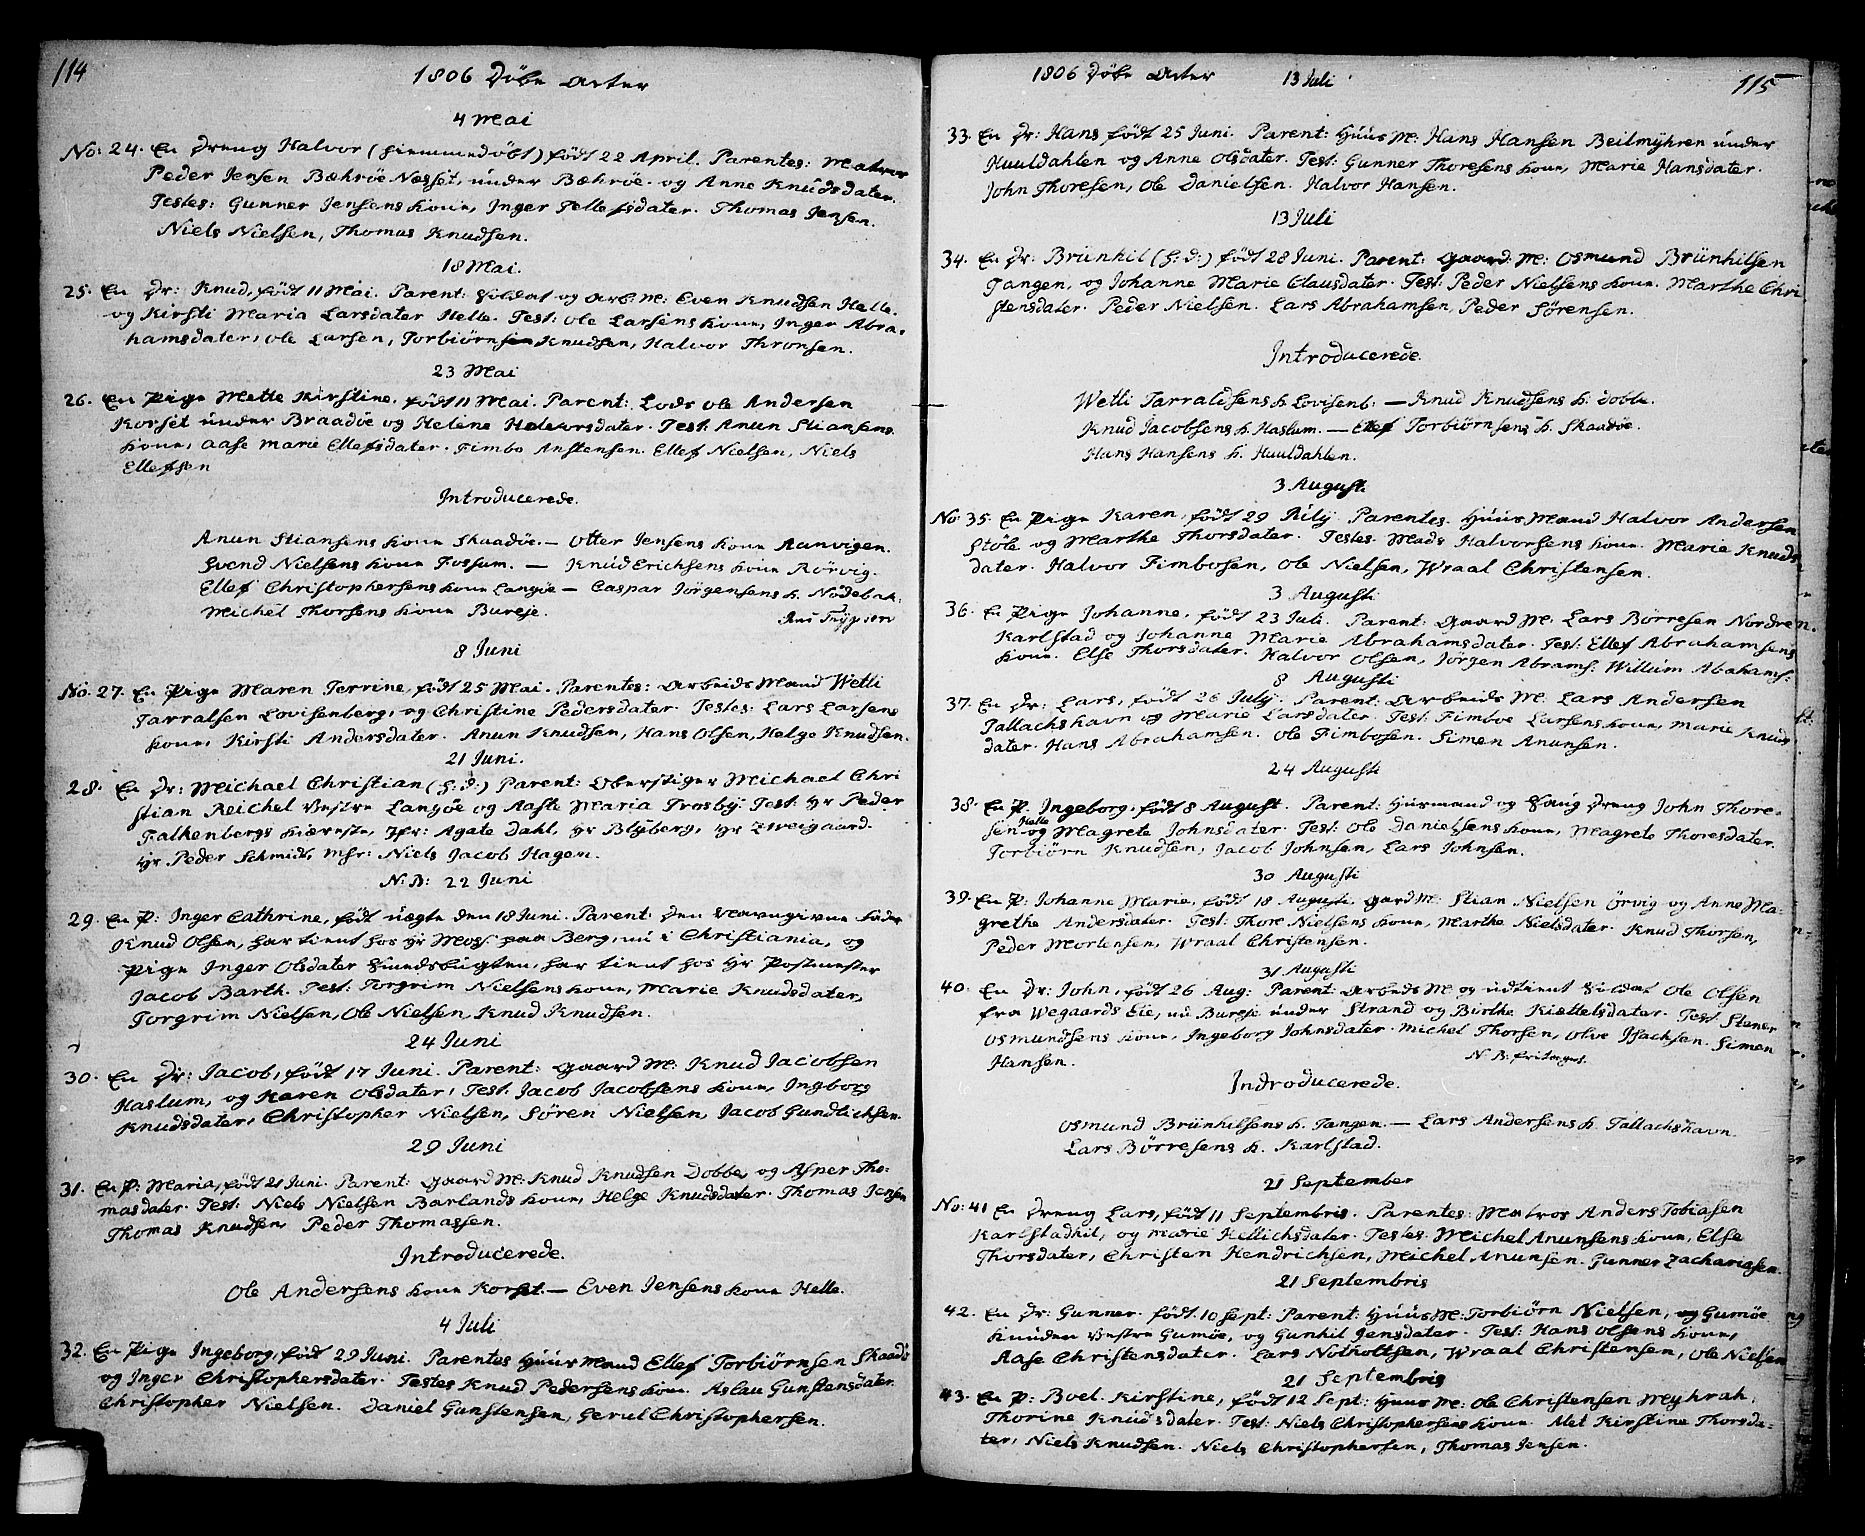 114
1806 Döbe Acter
4 Mai
No: 24. En Dreng Halvor (hiemmedöbt) födt 22 April. Parentes: Matros
Peder Jensen Bæhröe Næsset, under Bæhröe. og Anne Knudsdater.
Testes: Gunner Jensens kone, Inger Pellefsdater. Thomas Jensen.
Niels Nielsen, Thomas Knudsen.
18 Mai.
25. En Dr: Knud, födt 11 Mai. Parent: Soldat og Arb. M: Even Knudsen Helle.
og Kirsti Maria Larsdater Helle. Test: Ole Larsens kone, Inger Abra-
hamsdater, Ole Larsen, Torbiörn Knudsen, Halvor Thronsen.
23 Mai
26. En Pige Mette Kirstine. födt 11 Mai. Parent: Lods Ole Andersen
Korset under Braadöe og Helene Halvorsdater. Test: Anun Stiansens
kone, Aase Marie Ellefsdater. Fimbo Anstensen. Ellef Nielsen, Niels
Ellefsen
Introducerede.
Anun Stiansens kone Skaadöe. — Otter Jensens kone Aanvigen.
Svend Nielsens kone Fossum. — Knud Erichsens kone Rörvig.
Ellef Christophersens kone Langöe — Caspar Jörgensens k. Nödebak.
Michel Thorsens kone Bureje.
8 Juni
No. 27. En Pige Maren Terrine, födt 25 Mai. Parentes: Arbeids Mand Wetli
Tarralsen Lovisenberg, og Christine Pedersdater. Testes: Lars Larsens
kone, Kirsti Andersdater. Anun Knudsen, Hans Olsen, Helge Knudsen.
21 Juni.
28. En Dr: Michael Christian (h:d:) Parent: Oberstiger Michael Chri
stian Reichel Vestre Langöe og Aaste Maria Trosby. Test: Hr Peder
Falkenbergs kiæreste, Jfr: Agate Dahl, Hr Blÿberg, Hr Zweigaard.
Hr Peder Schmidt, Msr: Niels Jacob Hagen.
N:B: 22 Juni
29. En P: Inger Cathrine, födt uægte den 18 Juni. Parent: den Navngivne fader
Knud Olsen, har tient hos Hr Moss paa Berg, nu i Christiania, og
Pige Inger Olsdater Sundsbugten, har tient hos Hr Postmester
Jacob Barth. Test: Torgrim Nielsens kone, Marie Knudsdater,
Torgrim Nielsen, Ole Nielsen, Knud Knudsen.
24 Juni
30. En Dr: Jacob, födt 17 Juni. Parent: Gaard M: Knud Jacobsen
Haslum, og Karen Olsdater, Test: Jacob Jacobsens kone, Ingborg
Knudsdater, Christopher Nielsen, Sören Nielsen, Jacob Gundlichsen.
29 Juni
31. En P: Maria, födt 21 Juni. Parent: Gaard M: Knud Knudsen Dobbe, og Asper Tho-
masdater. Test: Niels Nielsen Barlands kone, Helge Knudsdater. Thomas Jensen
Thomas Knudsen, Peder Thomassen.
Introducerede.
Ole Andersens kone Korset. — Even Jensens kone Helle.
4 Juli
32. En Pige Ingeborg, födt 29 Juni. Parentes Huus Mand Ellef Torbiörnsen Skaadö
og Inger Christophersdater. Testes Knud Pedersens kone. Aslau Gunstensdater.
Christopher Nielsen. Daniel Gunstensen, Gerul Christophersen.
1806 Döbe Acter 13 Juli
115
33. En Dr: Hans födt 25 Juni. Parent: Huus M: Hans Hansen Beilmÿhren under
Huuldahlen og Anne Olsdater. Test: Gunner Thoresens kone, Marie Hansdater.
John Thoresen, Ole Danielsen. Halvor Hansen.
13 Juli
34. En Dr: Brünhil (h:d:) födt 28 Juni. Parent: Gaard: M: Osmund Brünhilsen
Tangen, og Johanne Marie Clausdater. Test: Peder Nielsens kone. Marthe Chri
stensdater. Peder Nielsen. Lars Abrahamsen, Peder Sörensen.
Introducerede.
Wetli Tarraldsens k. Lovisenb. — Knud Knudsens k. Dobbe.
Knud Jacobsens k. Haslum. — Ellef Torbiörnsens k. Skaadöe.
Hans Hansens k. Huuldahlen.
3 Augusti
No: 35. En Pige Karen, födt 29 Juliÿ Parentes. Huus Mand Halvor Andersen
Stöle og Marthe Thorsdater. Testes. Mads Halvorsens kone. Marie Knuds-
dater. Halvor Fimbosen, Ole Nielsen, Wraal Christensen.
3 Augusti
36. En Pige Johanne, födt 23 Juli. Parent: Gaard M. Lars Börresen Nordre
Karlstad og Johanne Marie Abrahamsdater. Test: Ellef Abrahamsens
kone. Else Thorsdater. Halvor Olsen, Jörgen Abrams: Willum Abahams:
8 Augusti
37. En Dr: Lars, födt 26 July. Parent: Arbeids M. Lars Andersen
Tallachshavn og Marie Larsdater. Test: Fimboe Larsens kone, Marie Knuds
dater. Hans Abrahamsen. Ole Fimbosen. Simen Anunsen.
24 Augusti
38. En P. Ingeborg. födt 8 August. Parent: Husmand og Saug Dreng John Thore-
sen Helle og Magrete Johnsdater. Test: Ole Danielsens kone, Magrete Thoresdater.
Torbiörn Knudsen, Jacob Johnsen, Lars Johnsen.
30 Augusti
39. En P: Johanne Marie, födt 18 Augusti. Gaard M: Stian Nielsen Örvig og Anne Ma-
grethe Andersdater. Test: Thore Nielsens kone, Marthe Nielsdater. Knud Thorsen,
Peder Mortensen, Wraal Christensen.
31 Augusti
40. En Dr: John, födt 26 Aug: Parent: Arbeids M og udtient Soldat Ole Olsen
fra Wegaards Eie, nu Bureje under Strand og Birthe Kiættelsdater. Test: Stener
Osmundsens kone, Ingeborg Johnsdater. Michel Thorsen, Olve Jsachsen. Simen
Hansen.
Indroducerede.
Osmund Brünhilsens k. Tangen. — Lars Andersens k. Tallachshavn.
Lars Börresens k. Karlstad.
21 September
No: 41 En Dreng Lars, födt 11 Septembris. Parentes: Matros Anders Tobiasen
Karlstadkil, og Marie Kittichsdater. Testes. Michel Anunsens kone, Else
Thorsdater, Christen Hendrichsen, Michel Anunsen. Gunner Zachariasen.
21 Septembris
42. En Dr: Gunner. födt 10 Sept: Parent: Huus M: Torbiörn Nielsen, og Gumöe
Knuden Vestre Gumöe, og Gunhil Jensdater. Test: Hans Olsens kone,
Aase Christensdater. Lars Notholtsen, Wraal Christensen, Ole Nielsen
21 Septembris
43. En P: Boel Kirstine, födt 12 Sept: Huus M: Ole Christensen Meyhrak.
Thorine Knudsdater. Test: Niels Christophersens kone. Met Kirstine Thorsda-
ter, Niels Knudsen. Niels Christophersen, Thomas Jensen.